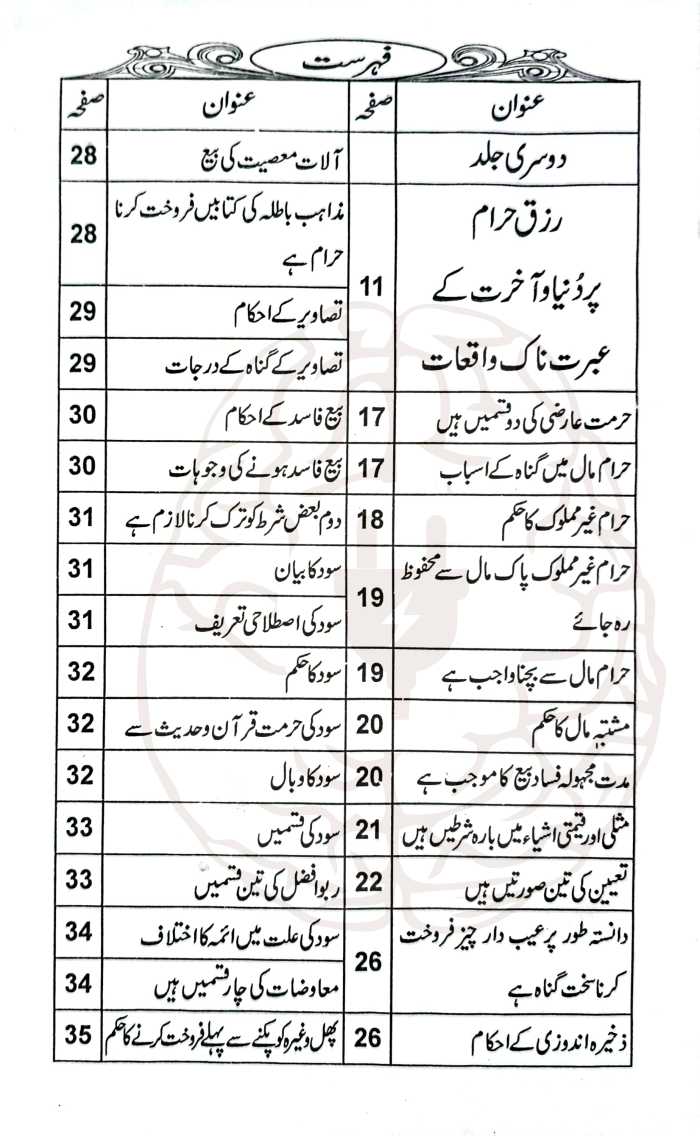 فہرست
عنوان صفحہ
دوسری جلد
رزق حرام
پر دُنیا و آخرت کے
عبرت ناک واقعات 11
حرمت عارضی کی دو قسمیں ہیں 17
حرام مال میں گناہ کے اسباب 17
حرام غیر مملوک کا حکم 18
حرام غیر مملوک پاک مال سے محفوظ
رہ جائے 19
حرام مال سے بچنا واجب ہے 19
مشتبہ مال کا حکم 20
مدت مجہولہ فساد بیع کا موجب ہے 20
مثلی اور قیمتی اشیاء میں بارہ شرطیں ہیں 21
تعیین کی تین صورتیں ہیں 22
دانستہ طور پر عیب دار چیز فروخت
کرنا سخت گناہ ہے 26
ذخیرہ اندوزی کے احکام 26
عنوان صفحہ
آلات معصیت کی بیع 28
مذاہب باطلہ کی کتابیں فروخت کرنا
حرام ہے 28
تصاویر کے احکام 29
تصاویر کے گناہ کے درجات 29
بیع فاسد کے احکام 30
بیع فاسد ہونے کی وجوہات 30
دوم بعض شرط کو ترک کرنا لازم ہے 31
سود کا بیان 31
سود کی اصطلاحی تعریف 31
سود کا حکم 32
سود کی حرمت قرآن و حدیث سے 32
سود کا وبال 32
سود کی قسمیں 33
ربوا فضل کی تین قسمیں 33
سود کی علت میں ائمہ کا اختلاف 34
معاوضات کی چار قسمیں ہیں 34
پھل وغیرہ کو پکنے سے پہلے فروخت کرنے کا حکم 35